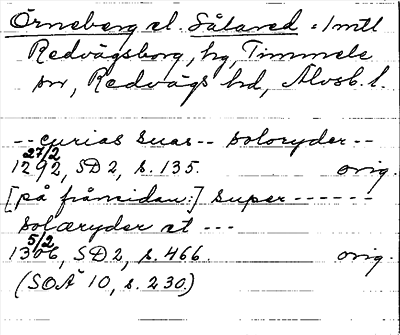 Örneberg el. Sålared, 1 mtl
Redvägsborg, hg, Timmele
sn, Redvägs hd, Älvsb. l.
-- curias suas -- soloryder --
27/2
1292, SD 2, s. 135. orig.
[på främsidan:] super ------
solæryder et ---
5/2
1306, SD 2, s. 466. orig.
(SOÄ 10, s. 230.)